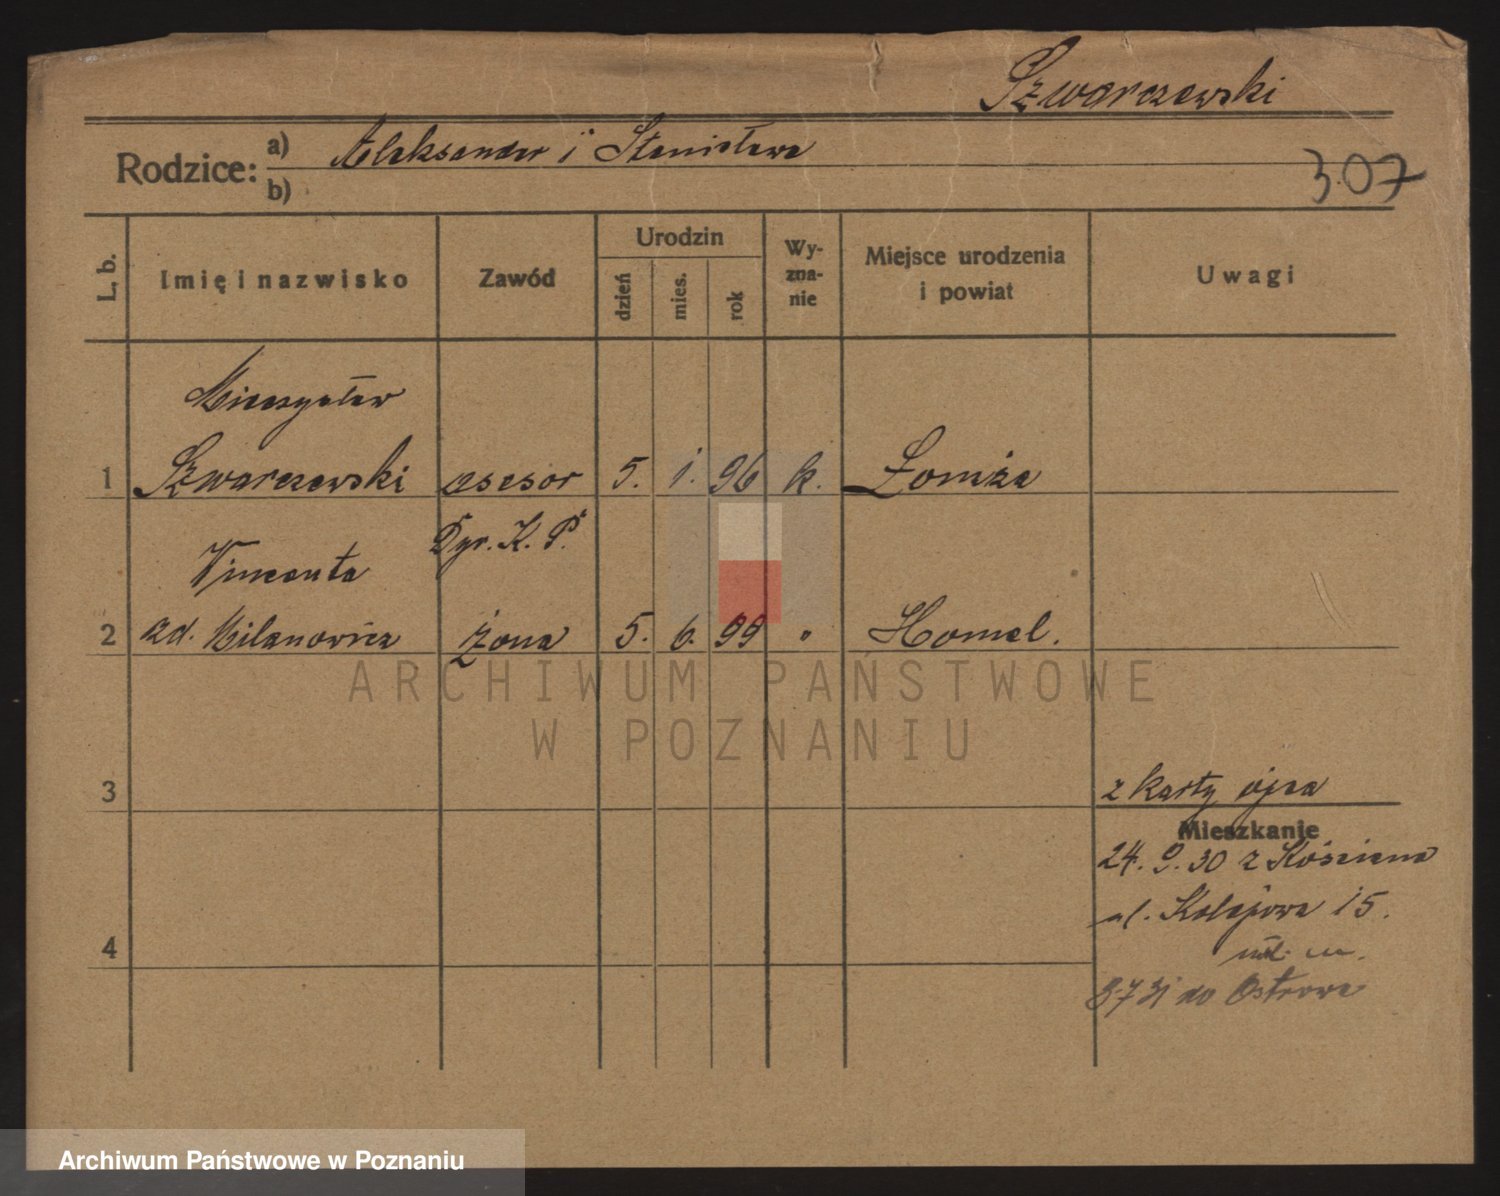 Szwarczewski
Rodzice: a) Aleksander i Stanisława
b)
307
L. b.
Imię i nazwisko
Zawód
Urodzin
dzień
mies.
rok
Wy-
zna-
nie
Miejsce urodzenia
i powiat
Uwagi
Mieczysław
1 Szwarczewski asesor 5. 1. 96 k. Łomża
Dyr. K. P.
Vincenta
2 zd. Milanowicz żona 5. 6. 99 " Homel.
3
z karty ojca
Mieszkanie
24. 9. 30 z Kościana
ul. Kolejowa 15.
4
3.7 31 do Ostrowa
ARCHIWUM PAŃSTWOWE
W POZNANIU
Archiwum Państwowe w Poznaniu